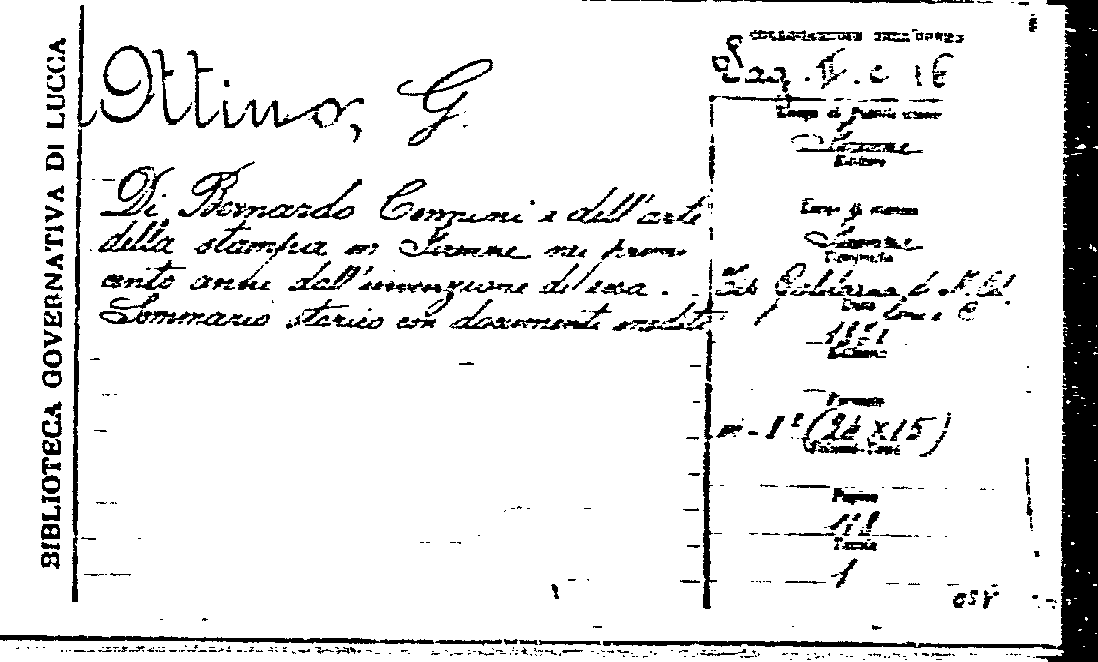 BIBLIOTECA GOVERNATIVA DI LUCCA
Ottino, G.
Di Bernardo Cennini e dell'arte
della stampa in Firenze nei primi
cento anni dall'invenzione di essa.
Sommario storico con documenti inediti
COLLOCAZIONE DELL'OPERA
II. c 16
Luogo di Pubblicazione
Firenze
Editore
Luogo di stampa
Firenze
Tipografia
Data
1871
Edizione
Formato
in-8° (24 x 15)
Pagine
118
Tavole
1